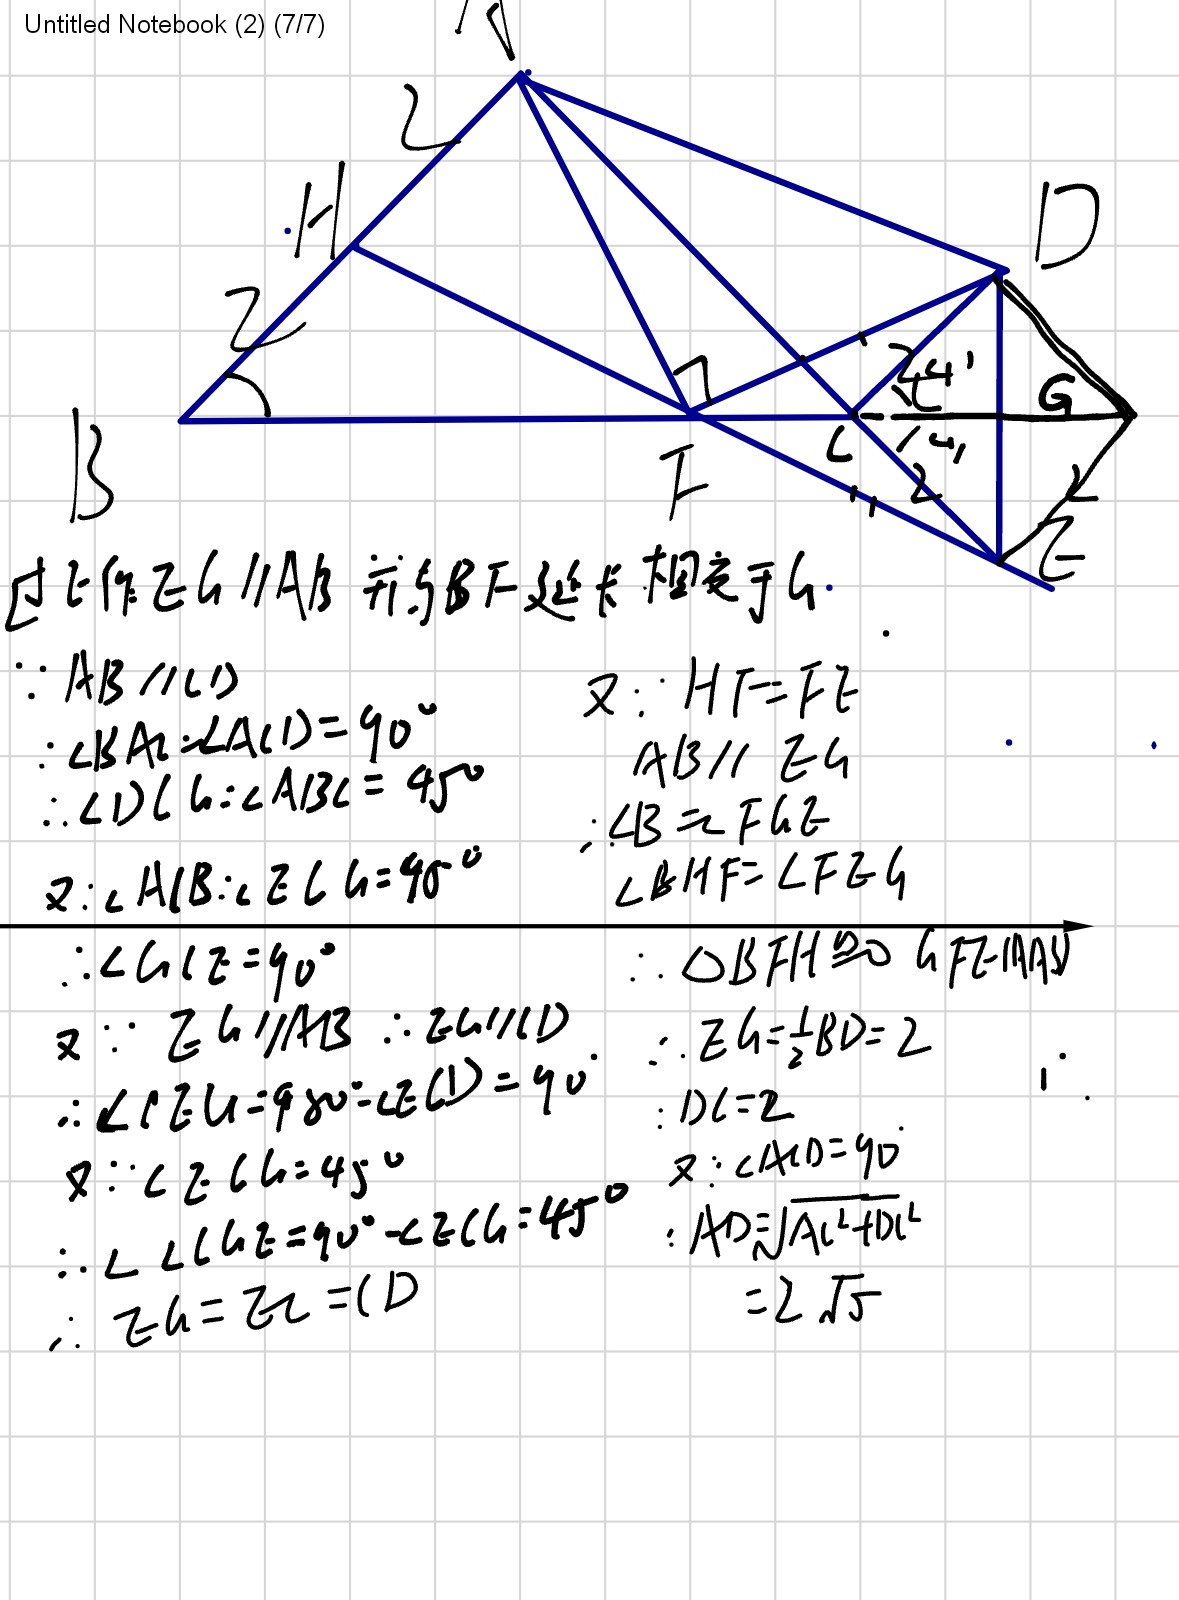 Untitled Notebook (2) (7/7)
A
2
H
2
D
B
F
C
G
2
2
E
过E作EG//AB 并与BF延长相交于G.
∵AB//CD
∴∠BAC=∠ACD=90°
∴∠DCG=∠ABC=45°
又∵∠ACB=∠ECG=45°
∴∠GCE=90°
又∵EG//AB ∴EG//CD
∴∠CEG=180°-∠ECD=90°
又∵∠ECG=45°
∴∠∠CGE=90°-∠ECG=45°
∴EG=EC=CD
又∵HF=FE
AB//EG
∴∠B=∠FGE
∠BHF=∠FEG
∴△BFH≌△GFE(AAS)
∴EG=½BD=2
∴DC=2
又∵∠ACD=90°
∴AD=√AC²+DC²
=2√5